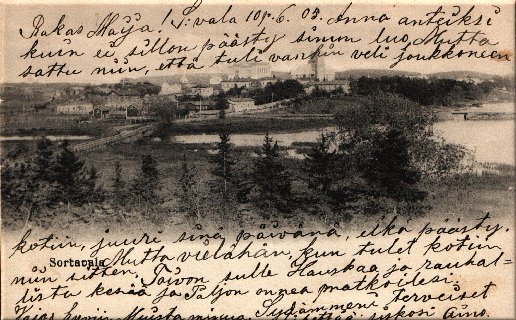 Rakas Maija! S:vala 10p. 6. 03. Anna anteiksi
kuin ei sillon päästy sinun luo, Mutta
sattu niin, että tuli vankin veli joukkoneen
kotiin, juuri sinä päivänä, eikä päästy.
Sortavala
Mutta vielähän, kun tulet kotiin
niin sitten. Toivon sulle Hauskaa ja rauhal-
lista kesää ja Paljon onnea matkoilesi.
Sydämmeni terveiset
Aino.